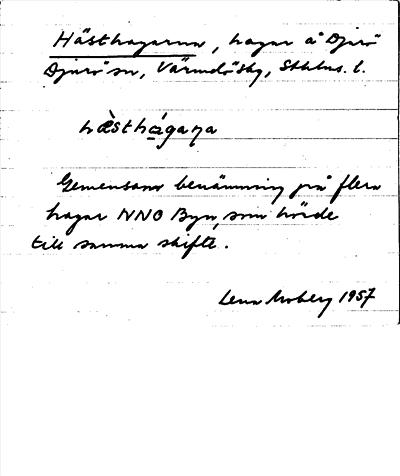 Hästhagarna, hagar å Djurö
Djurö sn, Värmdö skg, Sthlms. l.
hæsthágaɳa
Gemensam benämning på flera
hagar NNO Byn, som hörde
till samma skifte.
Lena Moberg 1957